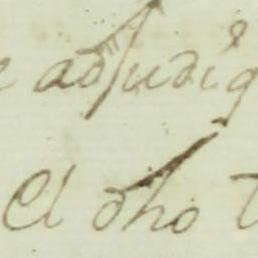 adjudiq
El dho